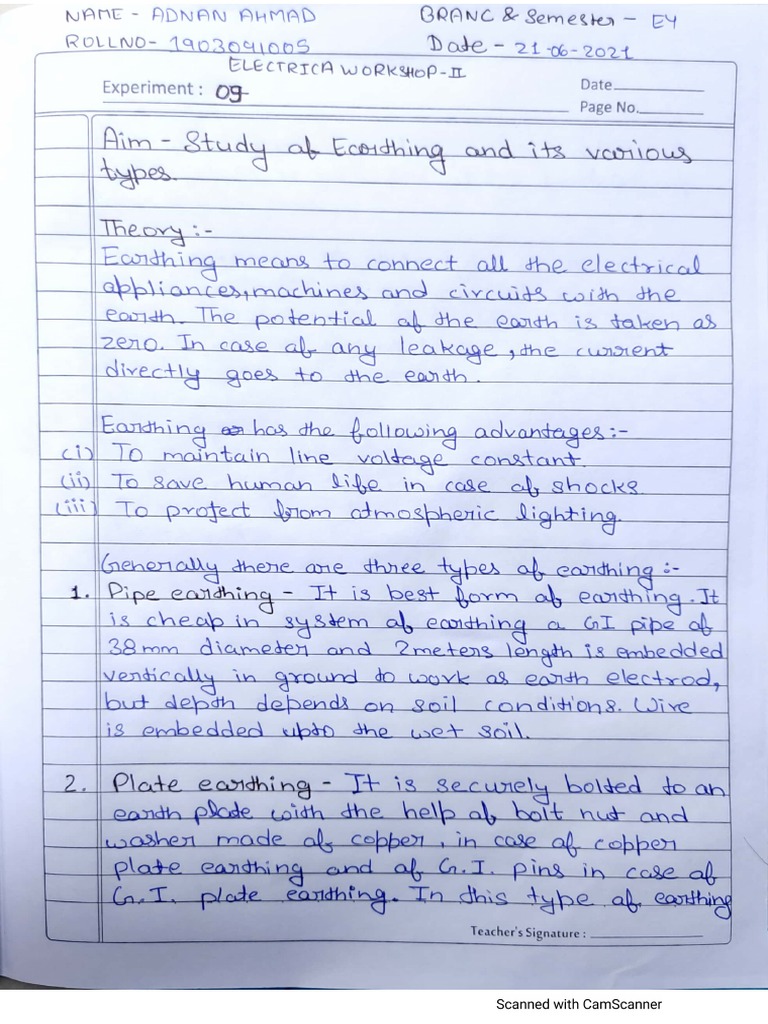 NAME - ADNAN AHMAD
BRANC & Semester - E4
ROLLNO- 1903041005
Date - 21-06-2021
ELECTRICA WORKSHOP-II
Experiment : 09
Date
Page No.
Aim - Study of Earthing and its various
types.
Theory :-
Earthing means to connect all the electrical
appliances, machines and circuits with the
earth. The potential of the earth is taken as
zero. In case of any leakage, the current
directly goes to the earth.
Earthing has the following advantages:-
(i) To maintain line voltage constant.
(ii) To save human life in case of shocks.
(iii) To protect from atmospheric lighting.
Generally there are three types of earthing :-
1. Pipe earthing - It is best form of earthing. It
is cheap in system of earthing a GI pipe of
38mm diameter and 2meters length is embedded
vertically in ground to work as earth electrod,
but depth depends on soil conditions. Wire
is embedded upto the wet soil.
2. Plate earthing - It is securely bolted to an
earth plate with the help of bolt nut and
washer made of copper, in case of copper
plate earthing and of G.I. pins in case of
G.I. plate earthing. In this type of earthing
Teacher's Signature :
Scanned with CamScanner